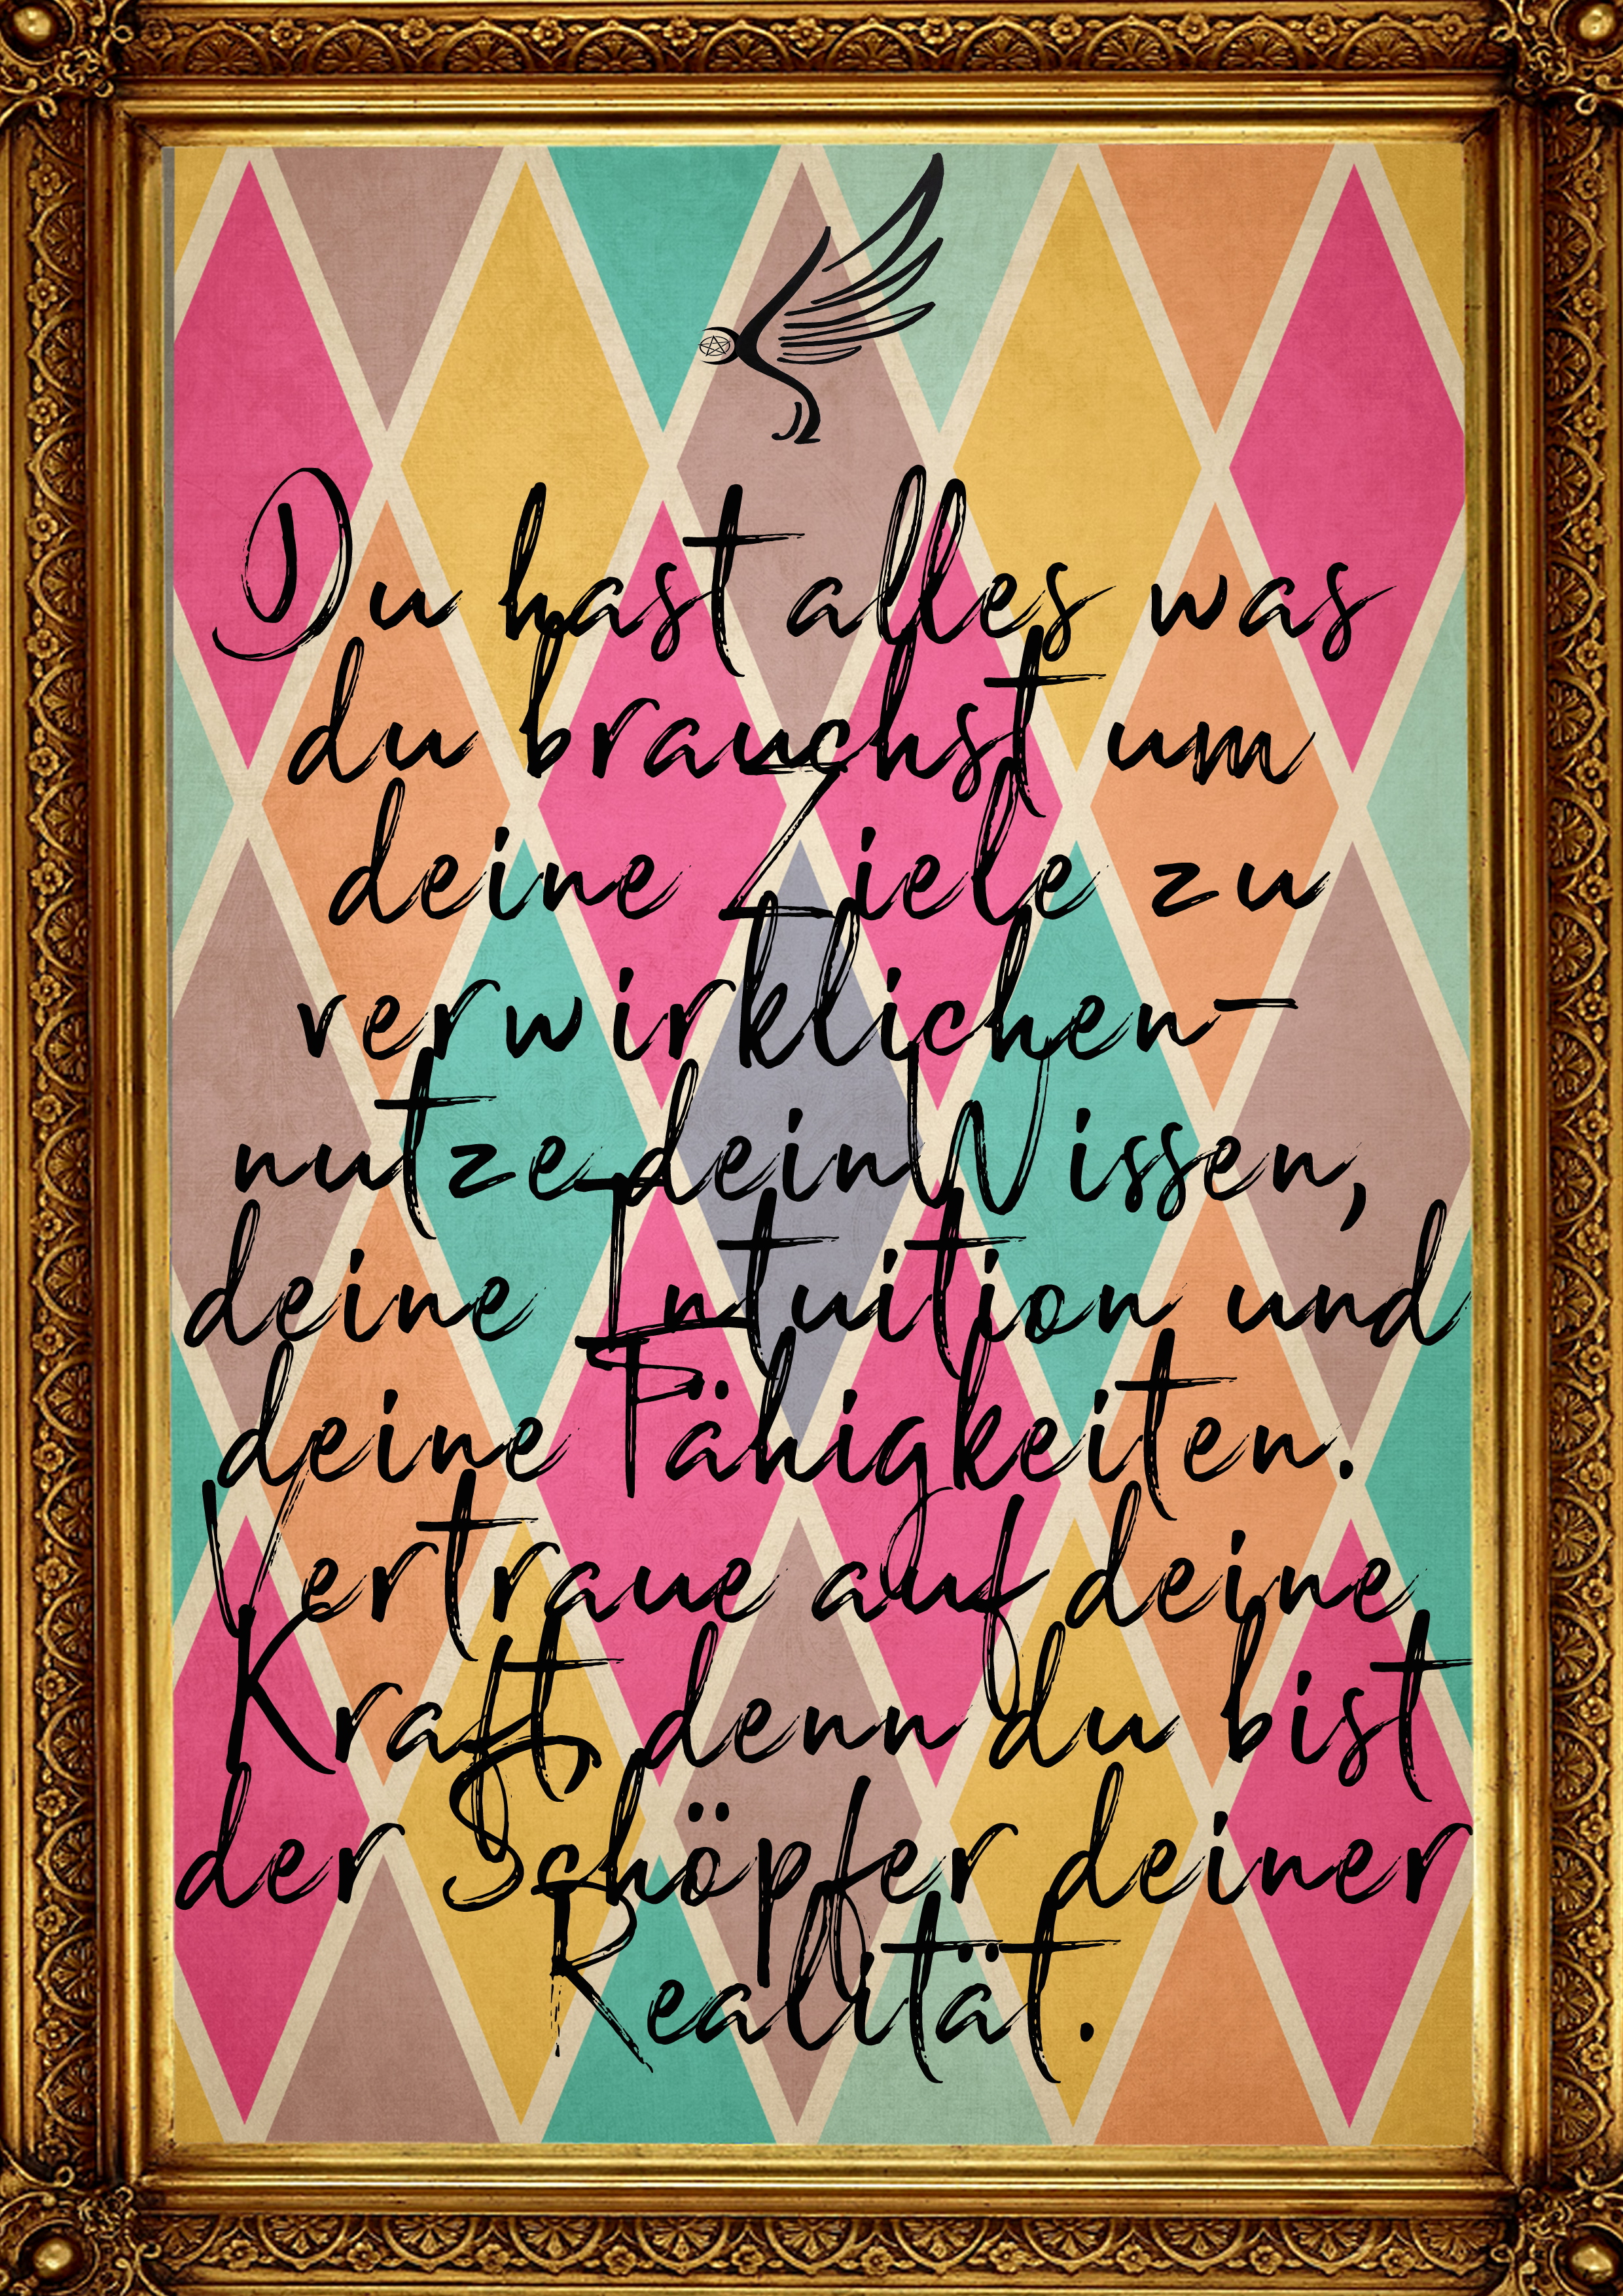 Du hast alles was
du brauchst um
deine Ziele zu
verwirklichen-
nutze dein Wissen,
deine Intuition und
deine Fähigkeiten.
Vertraue auf deine
Kraft denn du bist
der Schöpfer deiner
Realität.